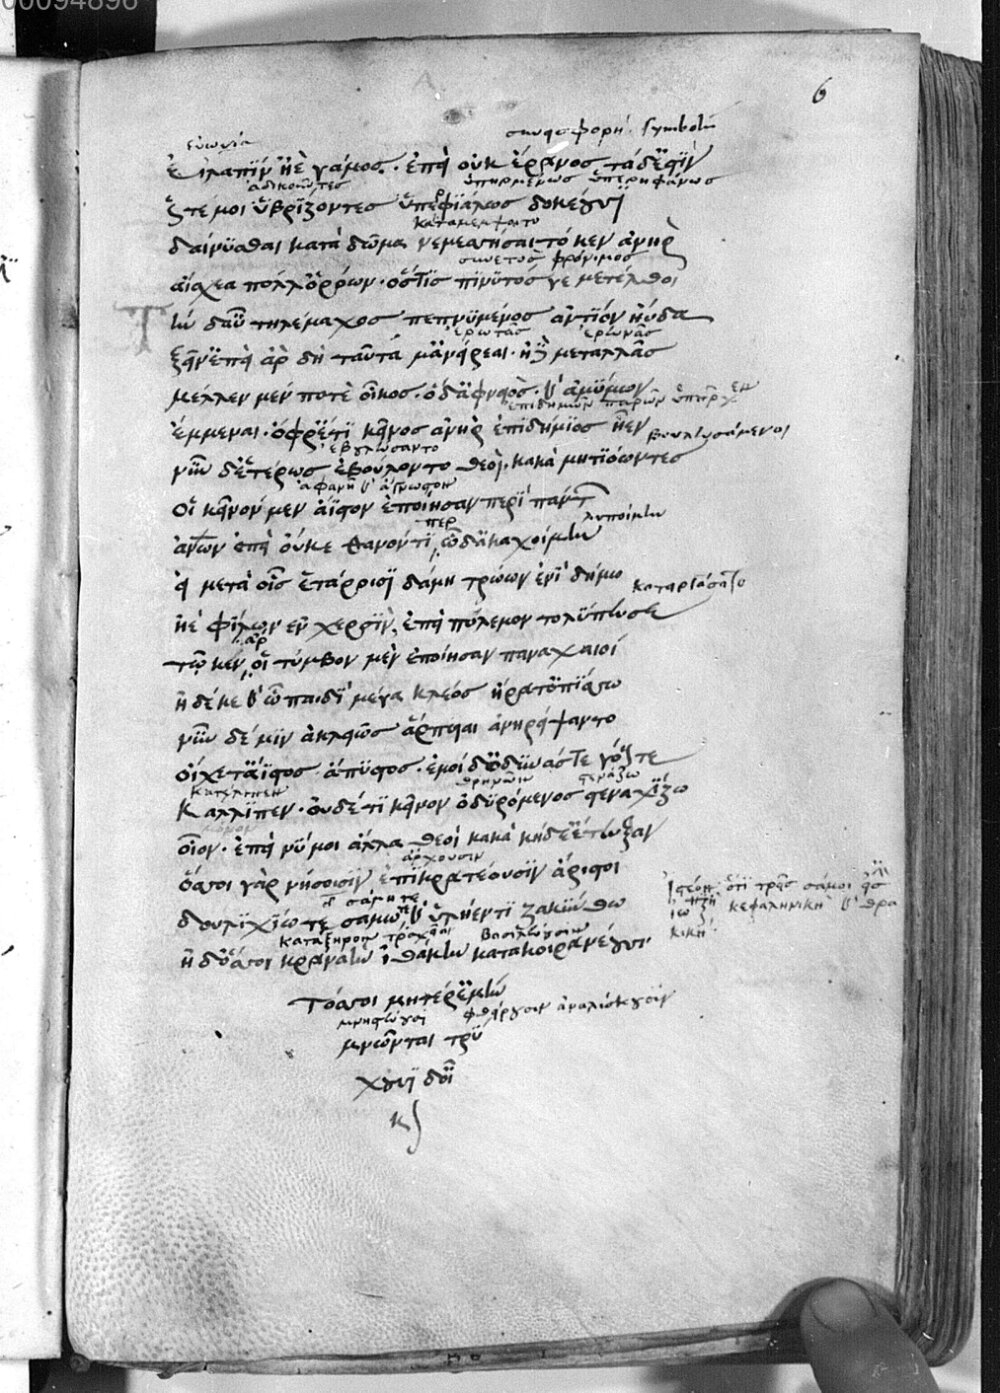 00094896
6
συνεισφορή. symbolū
εὐωχία
εἰλαπὶν ἠὲ γάμος. ἐπεὶ οὐκ ἔρανος τάδε ἐστὶν
ἀδικοῦντες ὑπηρμένως ὑπερηφάνως
ὥς τέ μοι ὑβρίζοντες ὑπερφιάλως δοκέουσι
καταμέμψοιτο
δαίνυσθαι κατὰ δῶμα νεμεσήσαιτό κεν ἀνὴρ
συνετὸς φρόνιμος
αἴσχεα πόλλ' ὁρόων. ὅς τις πινυτός γε μετέλθοι
Τὴν δ' αὖ τηλέμαχος πεπνυμένος ἀντίον ηὔδα
ἐρωτᾶς ἐρευνᾶς
ξεῖν' ἐπεὶ ἂρ δὴ ταῦτά μ' ἀνείρεαι. ἠδὲ μεταλλᾶς
μέλλεν μέν ποτε οἶκος ὅδ' ἀφνειὸς καὶ ἀμύμων
ἐπιδημῶν παρὼν ὑπῆρχεν
ἔμμεναι. ὄφρ' ἔτι κεῖνος ἀνὴρ ἐπιδήμιος ἦεν
βουλευσάμενοι
ἐβουλεύσαντο
νῦν δ' ἑτέρως ἐβούλοντο θεοὶ. κακὰ μητιόωντες
ἀφανῆ καὶ ἄγνωστον
Οἳ κεῖνον μὲν ἄϊστον ἐποίησαν περὶ πάντων
λυποίμην
περ
ἀνθρώπων ἐπεὶ οὔ κε θανόντι ὧδ' ἀκαχοίμην
εἰ μετὰ οἷς ἑτάροισι δάμη τρώων ἐνὶ δήμω
καταρτίσατο
ἠὲ φίλων ἐν χερσὶν, ἐπεὶ πόλεμον τολύπευσε
ἄρ
τῶ κέν οἱ τύμβον μὲν ἐποίησαν παναχαιοί
ἠδέ κε καὶ ὧ παιδὶ μέγα κλέος ἤρατ' ὀπίσσω
νῦν δέ μιν ἀκλειῶς ἅρπυιαι ἀνηρείψαντο
οἴχετ' ἄϊστος ἄπυστος. ἐμοὶ δ' ὀδύνας τε γόους τε
κατέλιπεν θρηνῶν στενάζω
Κάλλιπεν. οὐδέ τι κεῖνον ὀδυρόμενος στεναχίζω
μόνον
οἶον. ἐπεὶ νύ μοι ἄλλα θεοὶ κακὰ κήδε' ἔτευξαν
ἄρχουσιν
ὅσσοι γὰρ νήσοισιν ἐπικρατέουσιν ἄριστοι
δουλιχίω τε σάμω τε καὶ ὑλήεντι ζακύνθω
κατάξηρον τραχεῖαν βασιλεύουσιν
ἠδ' ὅσσοι κραναὴν ἰθάκην κατακοιρανέουσι
Τόσσοι μητέρ' ἐμὴν
μνηστεύουσι φθείρουσιν ἀναλίσκουσιν
μνῶνται τρύ
χουσι δὲ οἶ
κον
ἰστέον ὅτι τρεῖς σάμοι εἰσὶ
κεφαληνικὴ καὶ θρα
κική